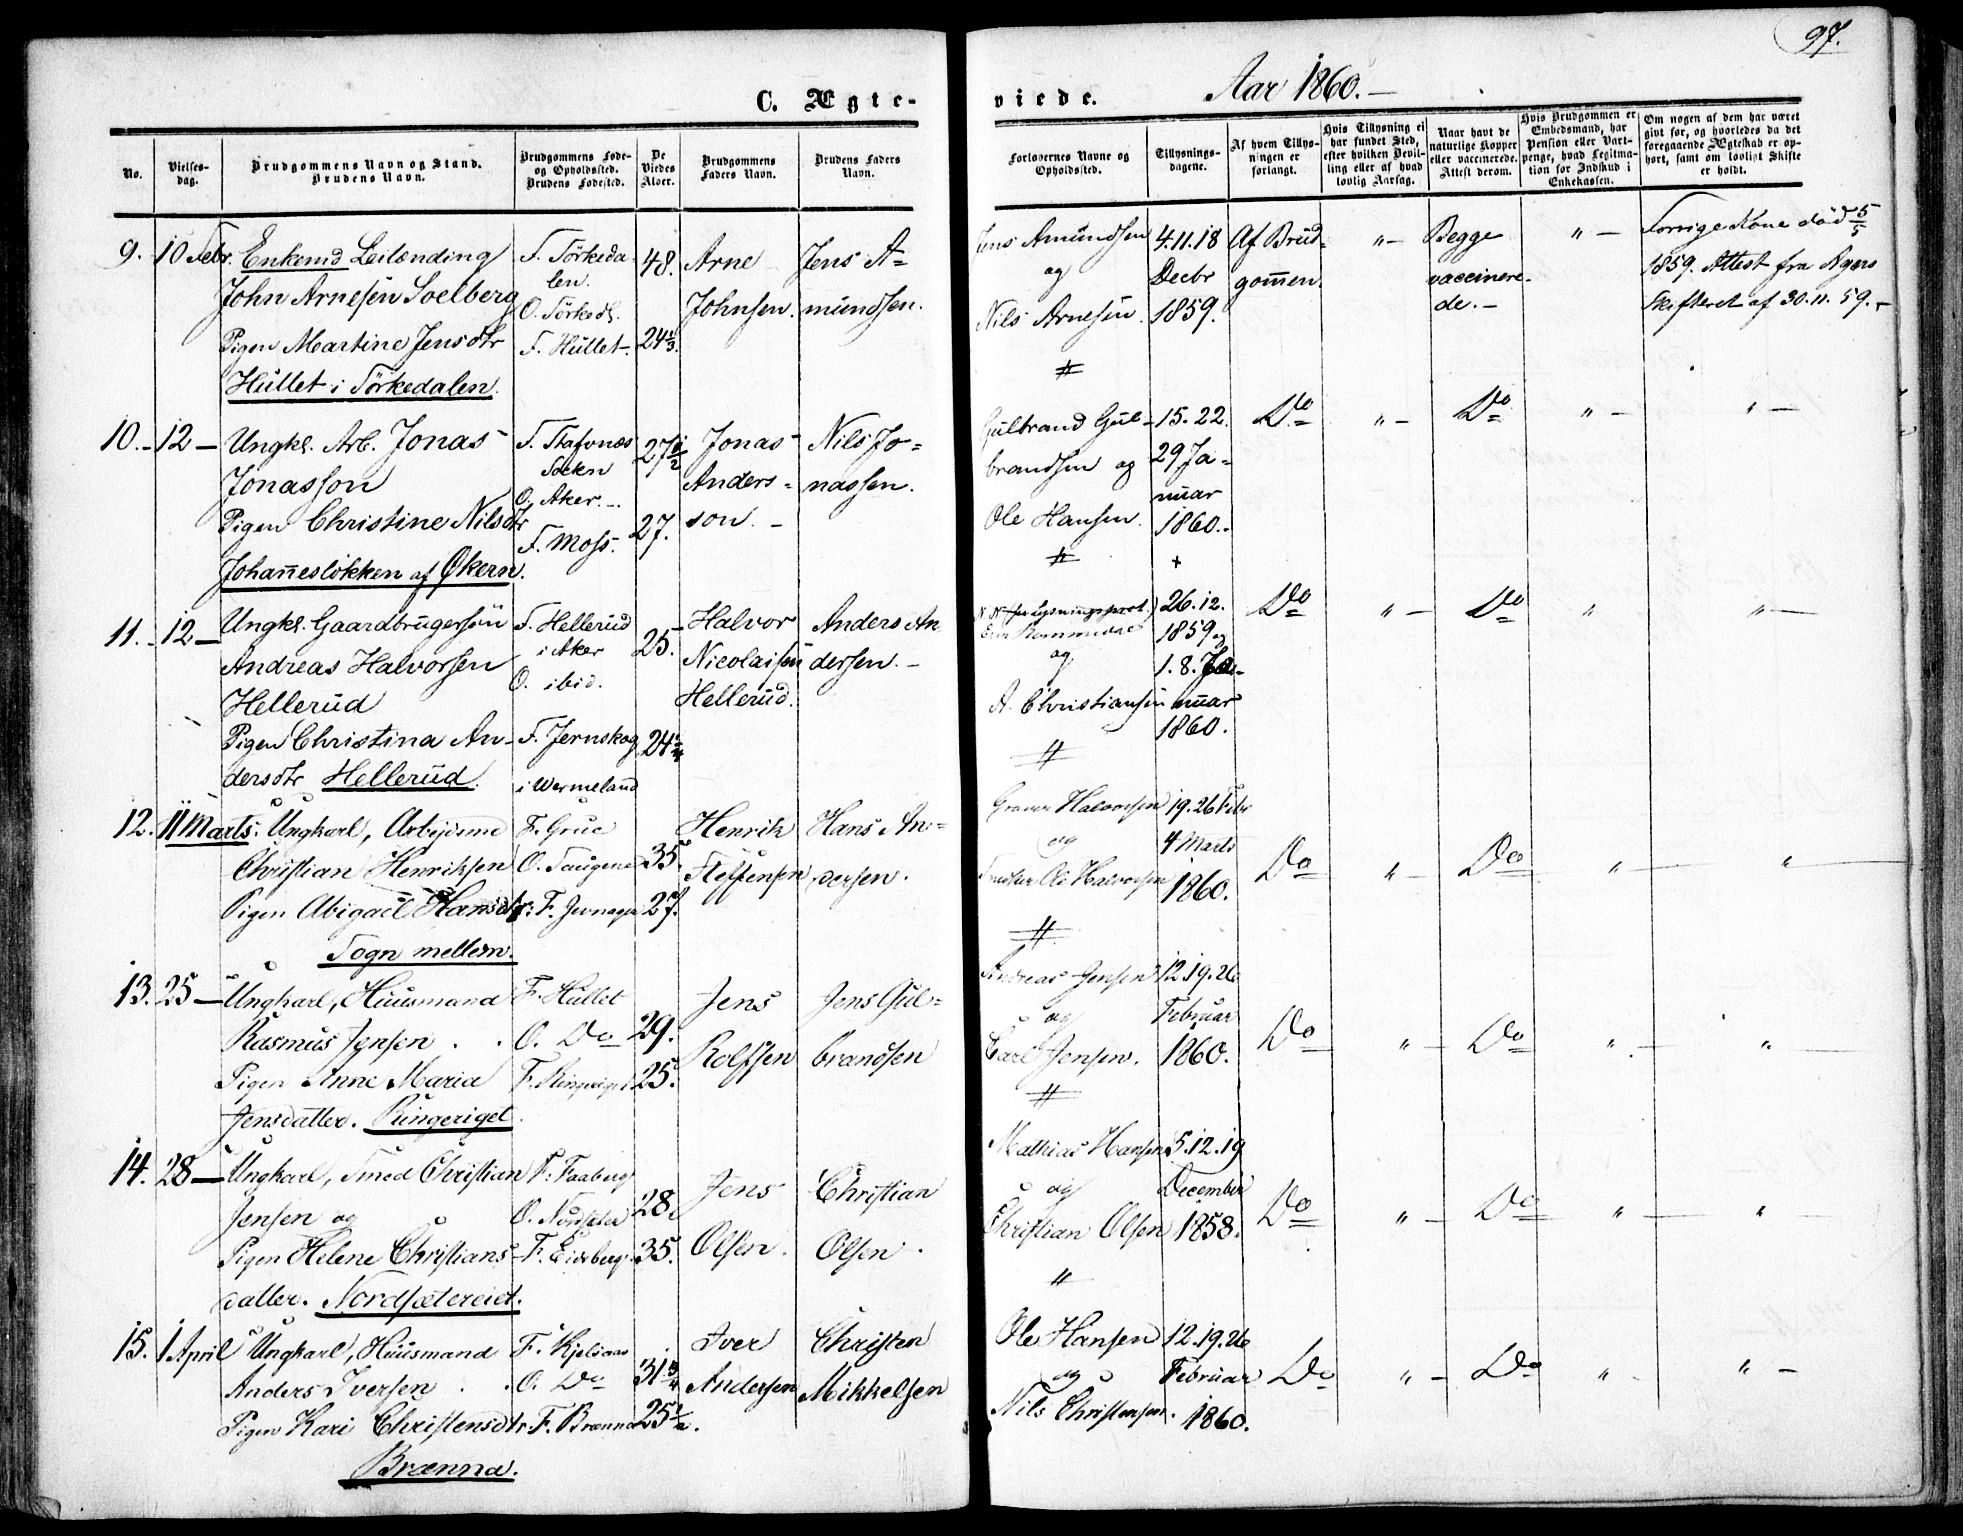 97.
C. Ægte-
viede.
Aar 1860. —
No.
Vielses-
dag.
Brudgommens Navn og Stand.
Brudens Navn.
Brudgommens Føde-
og Opholdssted.
Brudens Fødested.
De
Viedes
Alder.
Brudgommens
Faders Navn.
Brudens Faders
Navn.
Forlovernes Navne og
Opholdssted.
Tillysnings-
dagene.
Af hvem Tillys-
ningen er
forlangt.
Hvis Tillysning ei
har fundet Sted,
efter hvilken Bevil-
ling eller af hvad
lovlig Aarsag.
Naar havt de
naturlige Kopper
eller vaccinerede.
Attest derom.
Hvis Brudgommen er
Embedsmand, har
Pension eller Vart-
penge, hvad Legitima-
tion for Indskud i
Enkekassen.
Om nogen af dem har været
givt før, og hvorledes da det
foregaaende Ægteskab er op-
hørt, samt om lovligt Skifte
er holdt.
9. 10 Febr. Enkemd Leilænding
John Arnesen Soelberg
Pigen Martine Jensdtr
Hullet i Sörkedalen.
F. Sörkeda-
len.
O. Sörkedl.
F. Hullet.
48.
24 1/3.
Arne
Johnsen.
Jens A=
mundsen.
Jens Amundsen
og
Nils Arnesen.
4. 11. 18
Decbr
1859.
Af Brud-
gommen.
" —
Begge
vaccinere-
de. —
" —
Forrige Kone död 5/5
1859. Attest fra Agers
Skifteret af 30. 11. 59. —
10. — 12 — Ungkl. Arb. Jonas
Jonasson
Pigen Christine Nilsdtr
Johanneslökken af Økern.
Socken
O. Aker. —
F. Moss.
27 1/2
27.
Jonas
Anders-
son. —
Nils Jo=
nassen.
Gulbrand Gul-
brandsen og
Ole Hansen.
15. 22.
29 Ja-
nuar
1860. —
Do
" —
Do
" —
" —
11. — 12 — Ungkl. Gaardbrugersön
Andreas Halvorsen
Hellerud
Pigen Christina An-
dersdtr Hellerud.
F. Hellerud
i Aker
O. ibid.
F. Jernskog
i Wermeland
25.
24
Halvor
Nicolaisen
Hellerud.
Anders An-
dersen. —
og
A. Christiansen
26. 12.
1859 og
1. 8. Ja-
nuar
1860.
Do
" —
Do
"
" —
12. 11 Marts. Ungkarl, Arbeidsmd
Christian Henriksen
Pigen Abigael Hansdtr:
Sogn mellem.
F. Grue
O. Saugene
F. Jevnager
35.
27.
Henrik
Steffensen
Hans An=
dersen.
Halvorsen
og
Ole Halvorsen
19. 26 Febr
4 Marts
1860.
Do
" —
Do
" —
"
13. 25 — Ungkarl, Huusmand
Rasmus Jensen
Pigen Anne Maria
Jensdatter. Ringeriget.
F. Hullet
O. Do
F. Ringeriget
29.
25.
Jens
Rolfsen
Jens Gul=
brandsen
Andreas Jensen
og
Carl Jensen.
12. 19. 26
Februar
1860.
Do
" —
Do
" —
" —
14. 28 — Ungkarl, Smed Christian
Jensen og
Pigen Helene Christians-
datter. Nordsætereiet.
F: Faaberg
O. Nordseter
F. Eidsberg.
28.
35.
Jens
Olsen.
Christian
Olsen.
Mathias Hansen
og
Christian Olsen
5. 12. 19
December
1858.
Do
" —
Do
" —
" —
15. 1 April Ungkarl, Huusmand
Anders Iversen
Pigen Kari Christensdtr.
Brænna.
F. Kjelsaas
O. Do
F. Brænna
31 3/4
25 1/2.
Iver
Andersen
Christen
Mikkelsen
Ole Hansen
og
Nils Christensen.
12. 19. 26
Februar
1860.
Do
" —
Do
"
" —